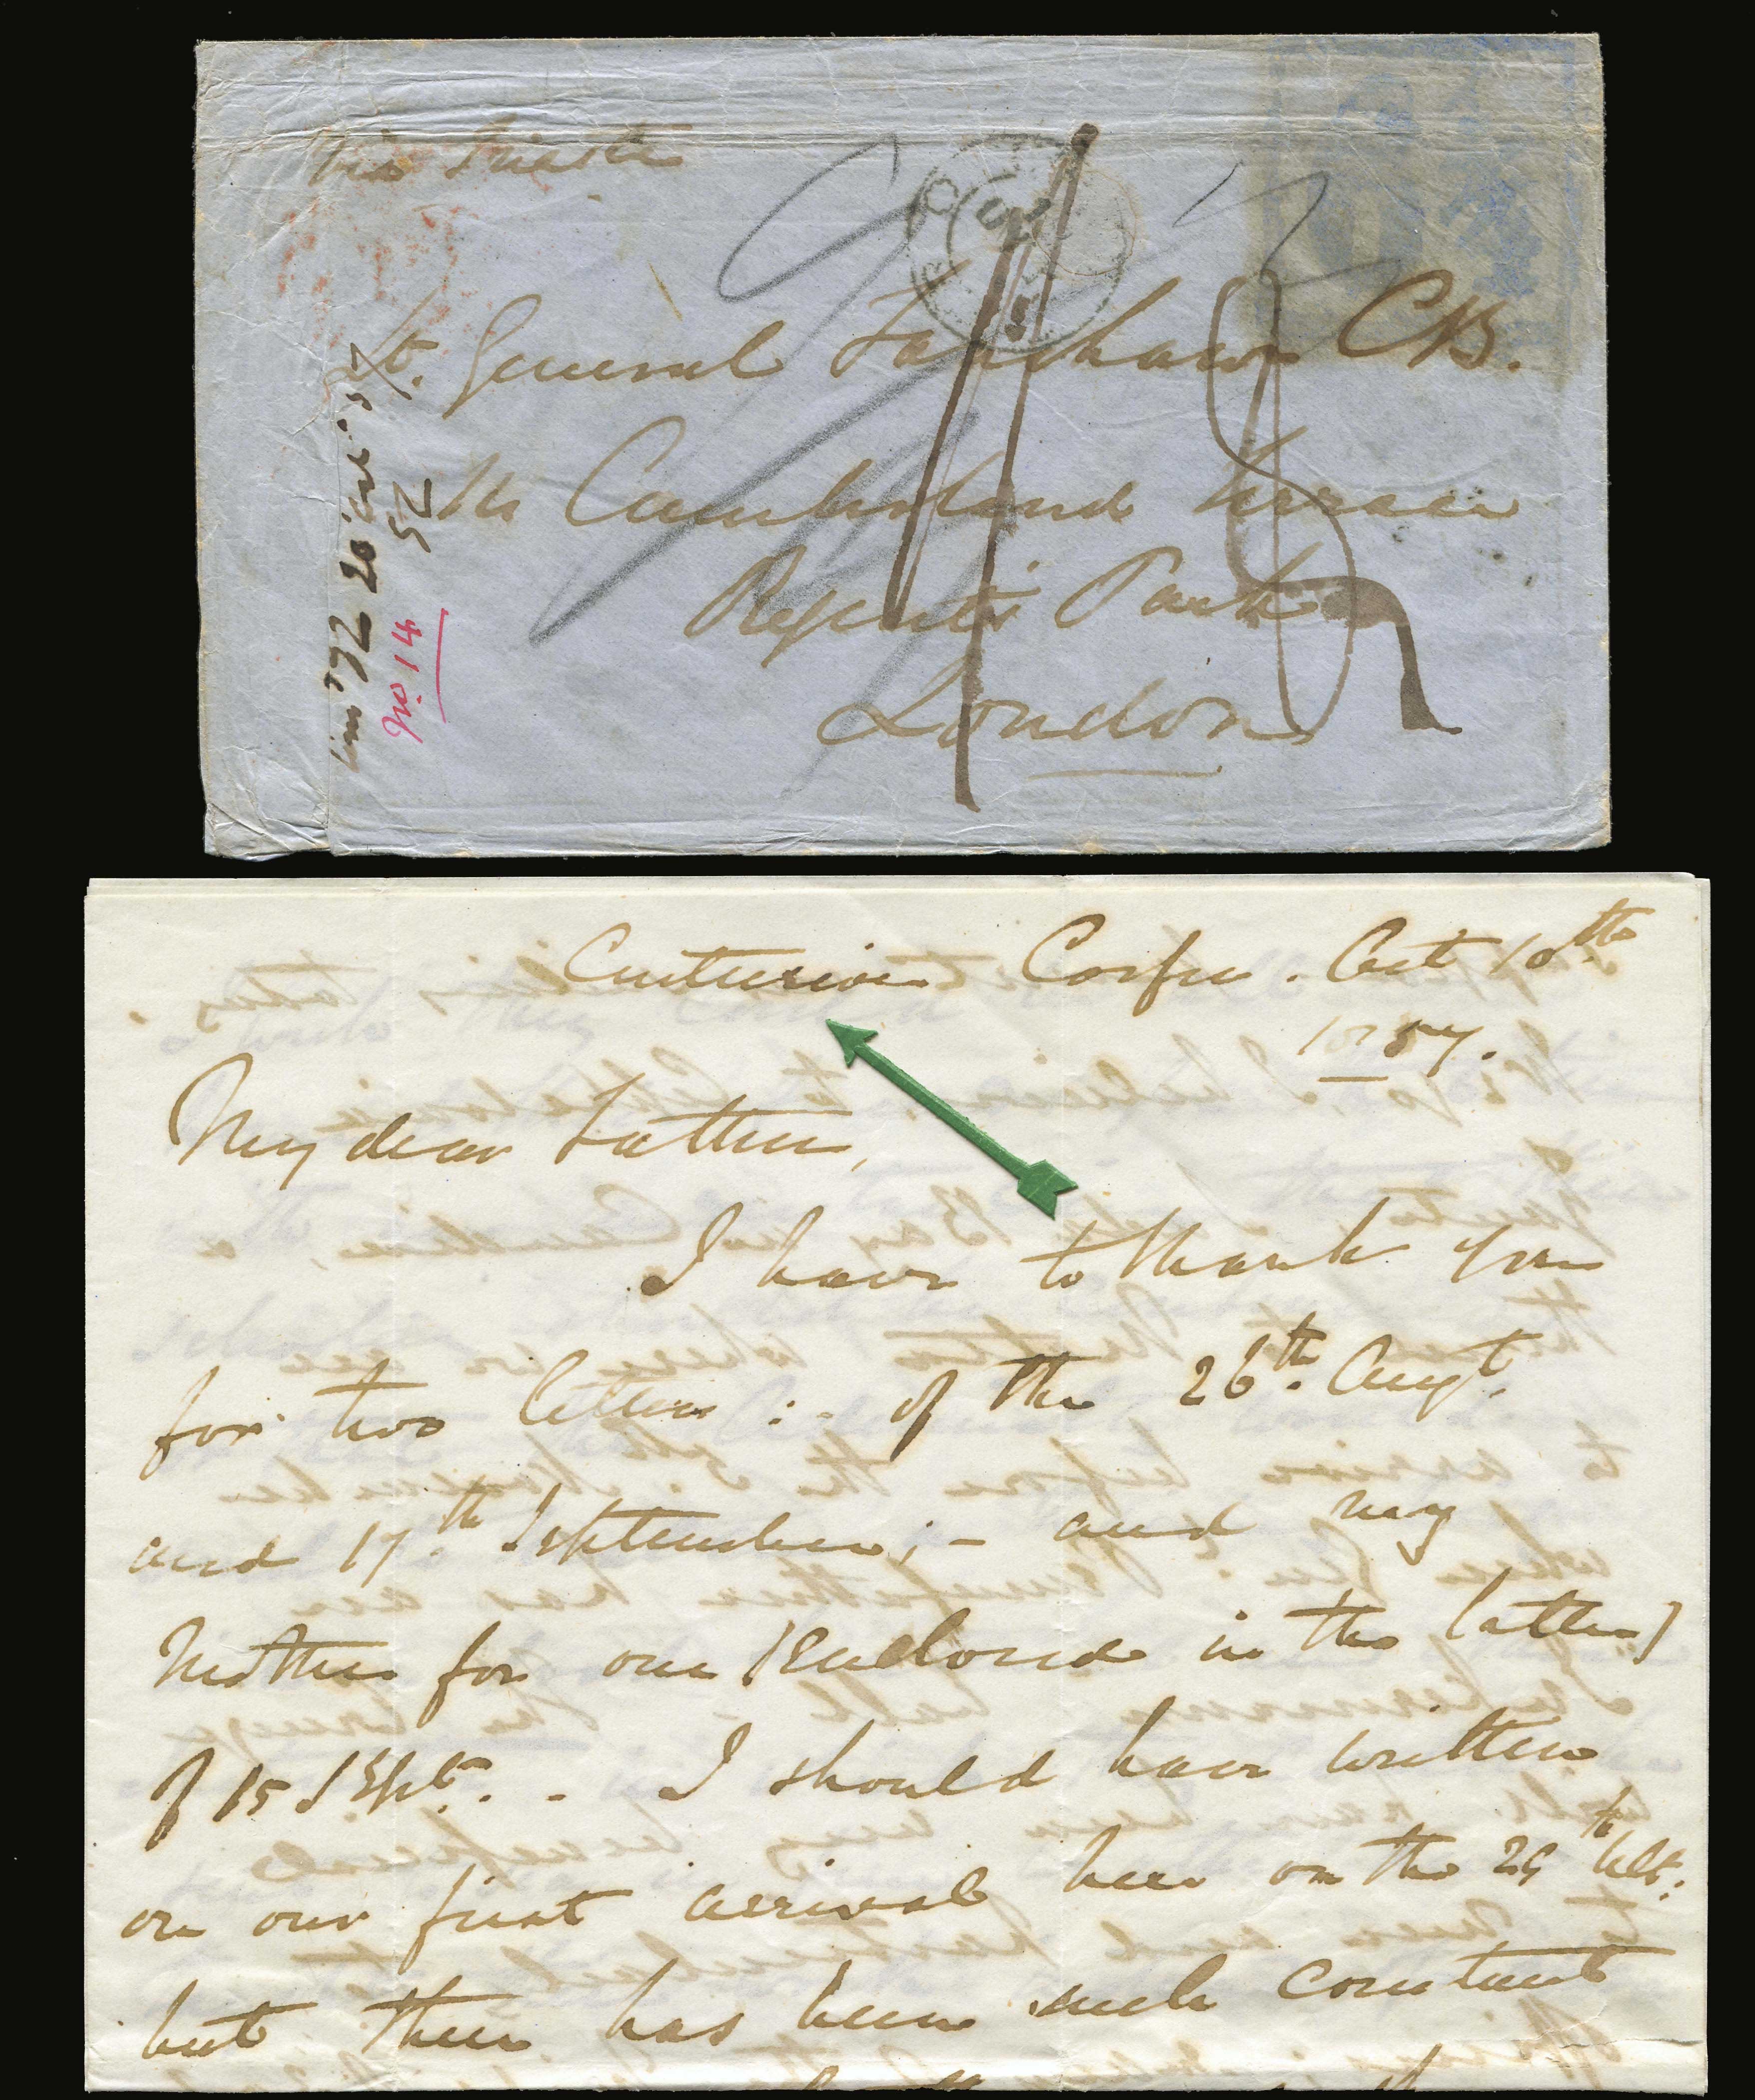 via Trieste
Lt. General Fanshawe CB.
Cumberland Terrace
Regent's Park
London
20 Oct. 57
52
No 14
Centurion Corfu. Oct 10th
1857.
My dear Father,
I have to thank you
for two letters :- of the 26th. Augt.
and 17th September ;- and my
Mother for one (enclosed in the latter)
of 15 Sept. . - I should have written
on our first arrival here on the 29th Ult:
but there has been such constant